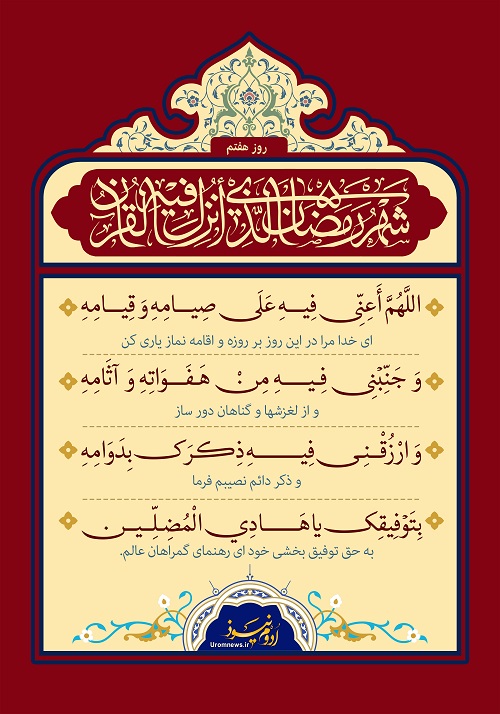 روز هفتم
شَهْرُ رَمَضَانَ الَّذِي أُنْزِلَ فِيهِ الْقُرْآنُ
اللَّهُمَّ أَعِنِّي فِيهِ عَلَى صِيَامِهِ وَ قِيَامِهِ
ای خدا مرا در این روز بر روزه و اقامه نماز یاری کن
وَ جَنِّبْنِي فِيهِ مِنْ هَفَوَاتِهِ وَ آثَامِهِ
و از لغزشها و گناهان دور ساز
وَ ارْزُقْنِي فِيهِ ذِكْرَكَ بِدَوَامِهِ
و ذکر دائم نصیبم فرما
بِتَوْفِيقِكَ يا هَادِيَ الْمُضِلِّينَ
به حق توفیق بخشی خود ای رهنمای گمراهان عالم.
اُروم نیوز
Uromnews.ir